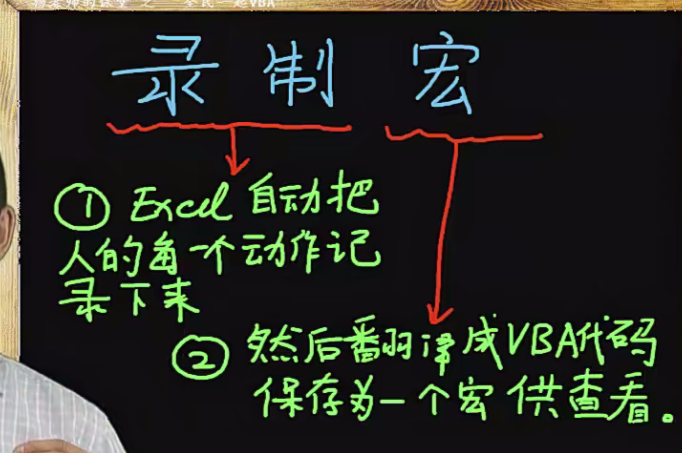 全民一起VBA
录制宏
① Excel自动把
人的每一个动作记
录下来
② 然后翻译成VBA代码
保存为一个宏供查看。